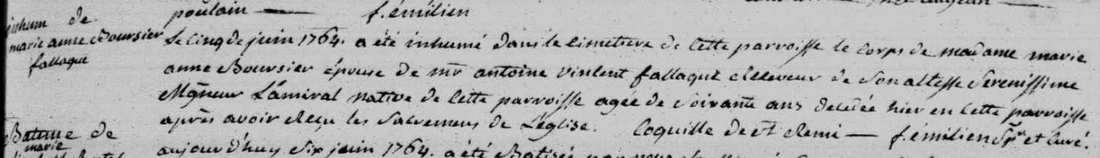 poulain — f. émilien
inhum de
marie anne Boursier
fallaque
Le cinq de juin 1764. a été inhumé dans le cimetiere de cette parroisse le corps de madame marie
anne Boursier épouse de mr antoine vincent fallaque Receveur de son altesse Serenissime
Mgneur L'amiral native de cette parroisse agée de soixante ans decedée hier en cette parroisse
après avoir Reçu les Sacremens de L'eglise. Coquille de st Remi — f. emilien Pr et Curé.
Bateme de
marie
aujourd'huy Six juin 1764. a été Batisée par nous